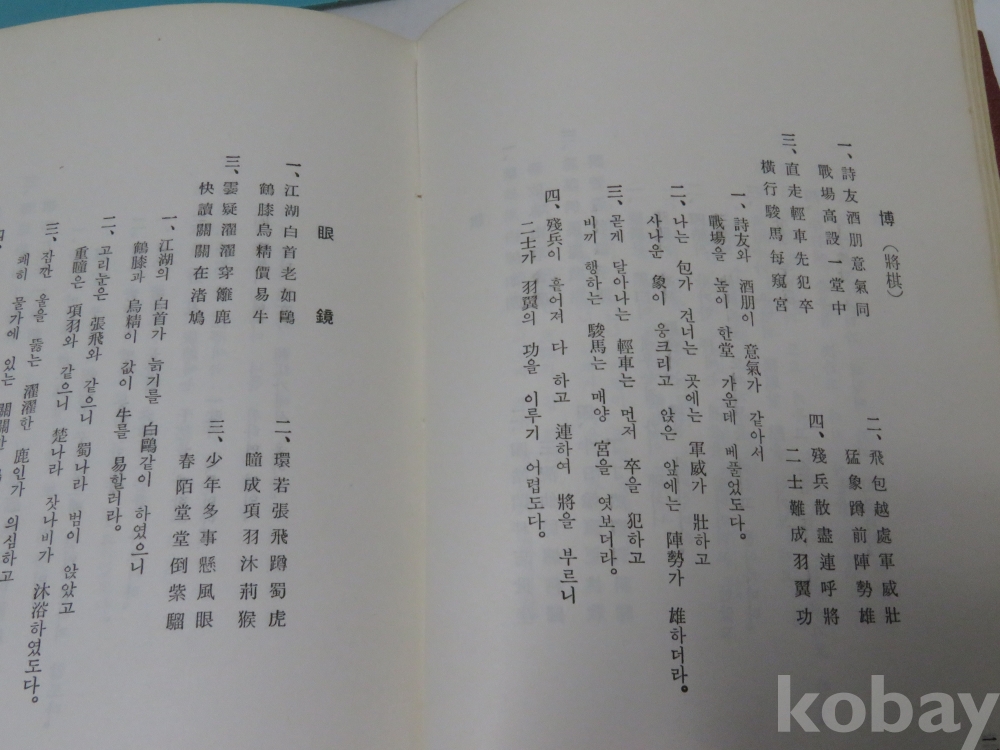 博（將棋）
一、詩友酒朋意氣同
戰場高設一堂中
二、飛包越處軍威壯
猛象蹲前陣勢雄
三、直走輕車先犯卒
橫行駿馬每窺宮
四、殘兵散盡連呼將
二士難成羽翼功
一、詩友와 酒朋이 意氣가 같아서
戰場을 높이 한堂 가운데 베풀었도다。
二、나는 包가 건너는 곳에는 軍威가 壯하고
사나운 象이 웅크리고 앉은 앞에는 陣勢가 雄하더라。
三、곧게 달아나는 輕車는 먼저 卒을 犯하고
비끼 행하는 駿馬는 매양 宮을 엿보더라。
四、殘兵이 흩어저 다 하고 連하여 將을 부르니
二士가 羽翼의 功을 이루기 어렵도다。
眼鏡
一、江湖白首老如鷗
鶴膝烏精價易牛
二、環若張飛蹲蜀虎
瞳成項羽沐荊猴
三、霎疑濯濯穿籬鹿
快讀關關在渚鳩
三、少年多事懸風眼
春陌堂堂倒紫騮
一、江湖의 白首가 늙기를 白鷗같이 하였으니
鶴膝과 烏精이 값이 牛를 易할러라。
二、고리눈은 張飛와 같으니 蜀나라 범이 앉았고
重瞳은 項羽와 같으니 楚나라 잣나비가 沐浴하였도다。
三、잠깐 울을 뚫는 濯濯한 鹿인가 의심하고
쾌히 물가에 있는 關關한
四、
kobay